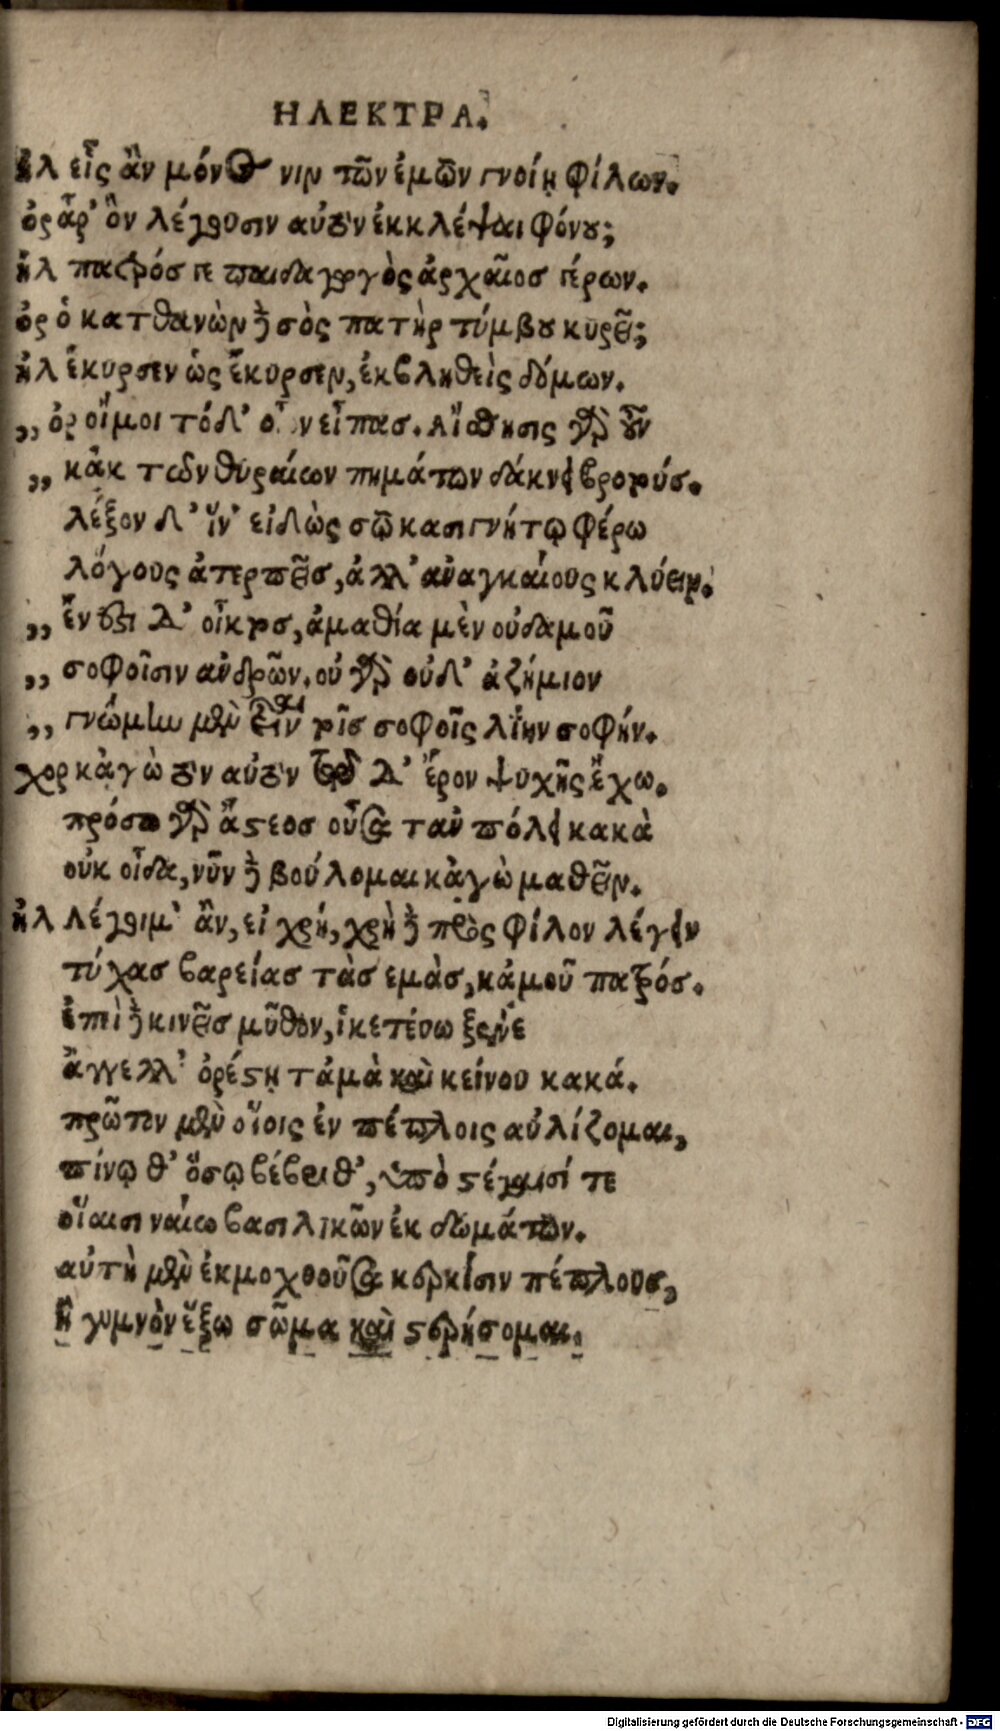 ΗΛΕΚΤΡΑ.
ἠλ εἷς ἂν μόνος νιν τῶν ἐμῶν γνοίη φίλων.
ὀρ ἆρ' ὃν λέγουσιν αὐτὸν ἐκκλέψαι φόνου;
ἠλ πατρός γε παιδαγωγὸς ἀρχαῖος γέρων.
ὀρ ὁ κατθανὼν δὲ σὸς πατὴρ τύμβου κυρεῖ;
ἠλ ἔκυρσεν ὡς ἔκυρσεν, ἐκβληθεὶς δόμων.
,, ὀρ οἴμοι τόδ' οἷον εἶπας. αἴσθησις γὰρ οὖν
,, κἀκ τῶν θυραίων πημάτων δάκνει βροτούς.
λέξον δ' ἵν' εἰδὼς σῷ κασιγνήτῳ φέρω
λόγους ἀτερπεῖς, ἀλλ' ἀναγκαίους κλύειν.
,, ἔνεστι δ' οἶκτος, ἀμαθία μὲν οὐδαμοῦ
,, σοφοῖσιν ἀνδρῶν. οὐ γὰρ οὐδ' ἀζήμιον
,, γνώμην μὲν εἶναι τοῖς σοφοῖς λίην σοφήν.
χορ κἀγὼ τὸν αὐτὸν τῷδε δ' ἔρον ψυχῆς ἔχω.
πρόσω γὰρ ἄστεος οὖσα τἀν πόλει κακὰ
οὐκ οἶδα, νῦν δὲ βούλομαι κἀγὼ μαθεῖν.
ἠλ λέγοιμ' ἂν, εἰ χρή, χρὴ δὲ πρὸς φίλον λέγειν
τύχας βαρείας τὰς εμὰς, κἀμοῦ πατρός.
ἐπεὶ δὲ κινεῖς μῦθον, ἱκετεύω ξένε
ἄγγελλ' ὀρέστῃ τἀμὰ καὶ κείνου κακά.
πρῶτον μὲν οἵοις ἐν πέπλοις αὐλίζομαι,
πίνῳ θ' ὅσῳ βέβριθ', ὑπὸ στέγαισί τε
οἵαισι ναίω βασιλικῶν ἐκ δωμάτων.
αὐτὴ μὲν ἐκμοχθοῦσα κερκίσιν πέπλους,
ἢ γυμνὸν ἕξω σῶμα καὶ στερήσομαι.
Digitalisierung gefördert durch die Deutsche Forschungsgemeinschaft - DFG